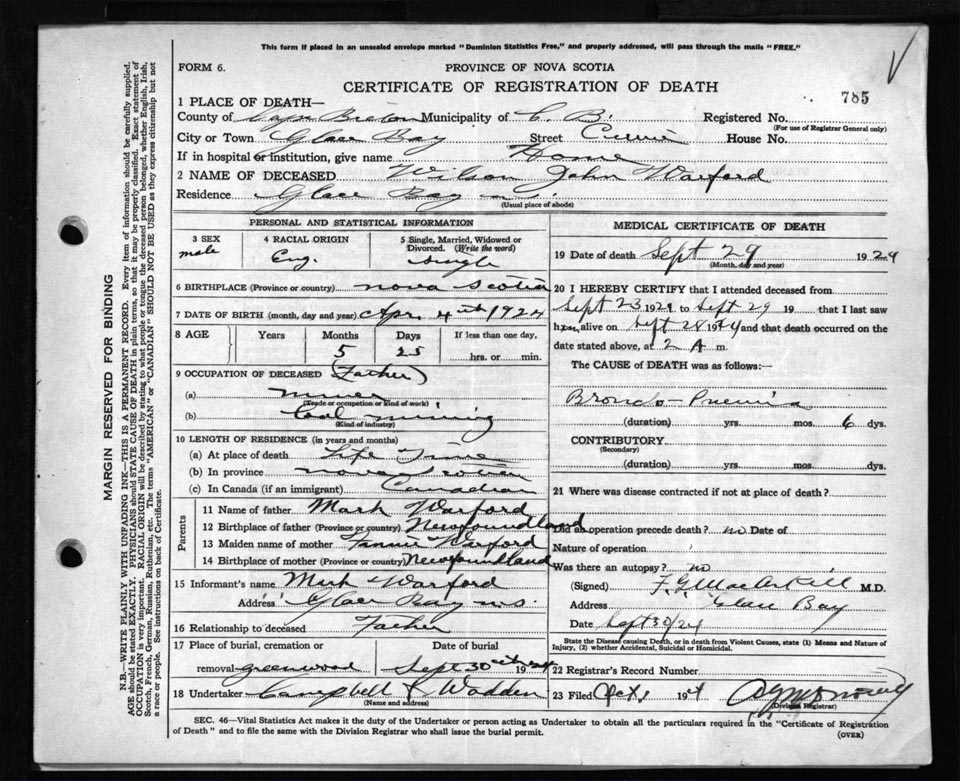 This form if placed in an unsealed envelope marked "Dominion Statistics Free," and properly addressed, will pass through the mails "FREE."
FORM 6.
PROVINCE OF NOVA SCOTIA
CERTIFICATE OF REGISTRATION OF DEATH
785
1 PLACE OF DEATH—
County of Cape Breton Municipality of C. B. Registered No.
(For use of Registrar General only)
City or Town Glace Bay Street House No.
If in hospital or institution, give name Home
2 NAME OF DECEASED Wilson John Warford
Residence Glace Bay n.s.
(Usual place of abode)
PERSONAL AND STATISTICAL INFORMATION
3 SEX 4 RACIAL ORIGIN 5 Single, Married, Widowed or Divorced. (Write the word)
male Eng. Single
6 BIRTHPLACE (Province or country) nova Scotia
7 DATE OF BIRTH (month, day and year) Apr 4th 1924
8 AGE Years Months Days If less than one day,
5 25 hrs. or min.
9 OCCUPATION OF DECEASED (Father)
(a) miner
(Trade or occupation or kind of work)
(b) Coal mining
(Kind of industry)
10 LENGTH OF RESIDENCE (in years and months)
(a) At place of death Life Time
(b) In province nova Scotia
(c) In Canada (if an immigrant) Canadian
Parents
11 Name of father Mark Warford
12 Birthplace of father (Province or country) Newfoundland
13 Maiden name of mother Fannie Warford
14 Birthplace of mother (Province or country) Newfoundland
15 Informant's name Mark Warford
Address Glace Bay n.s.
16 Relationship to deceased Father
17 Place of burial, cremation or removal Greenwood Date of burial Sept 30th 1924
18 Undertaker Campbell & Wadden
(Name and address)
MEDICAL CERTIFICATE OF DEATH
19 Date of death Sept 29 1924
(Month, day and year)
20 I HEREBY CERTIFY that I attended deceased from
Sept 23 1924 to Sept 29 19 that I last saw
him alive on Sept 28 1924 and that death occurred on
date stated above, at 2 A m.
The CAUSE of DEATH was as follows:—
Broncho-Pneumia
(duration) yrs. mos. 6 dys.
CONTRIBUTORY
(Secondary)
(duration) yrs. mos. dys.
21 Where was disease contracted if not at place of death?
Did an operation precede death? no Date of
Nature of operation
Was there an autopsy? no
(Signed) F. G. MacAskill M.D.
Address Glace Bay
Date Sept 30/24
State the Disease causing Death, or in death from Violent Causes, state (1) Means and Nature of Injury, (2) whether Accidental, Suicidal or Homicidal.
22 Registrar's Record Number
23 Filed Oct 1 1924
(Division Registrar)
SEC. 46—Vital Statistics Act makes it the duty of the Undertaker or person acting as Undertaker to obtain all the particulars required in the "Certificate of Registration
of Death" and to file the same with the Division Registrar who shall issue the burial permit.
(OVER)
MARGIN RESERVED FOR BINDING
N.B.—WRITE PLAINLY WITH UNFADING INK—THIS IS A PERMANENT RECORD. Every item of information should be carefully supplied.
AGE should be stated EXACTLY. PHYSICIANS should STATE CAUSE OF DEATH in plain terms, so that it may be properly classified. Exact statement of
OCCUPATION is very important. RACIAL ORIGIN will be described by stating to what people or tongue the deceased person belonged, whether English, Irish,
Scotch, French, German, Russian, Ruthenian, etc. The terms "AMERICAN" or "CANADIAN" SHOULD NOT BE USED as they express citizenship but not
a race or people. See instructions on back of Certificate.